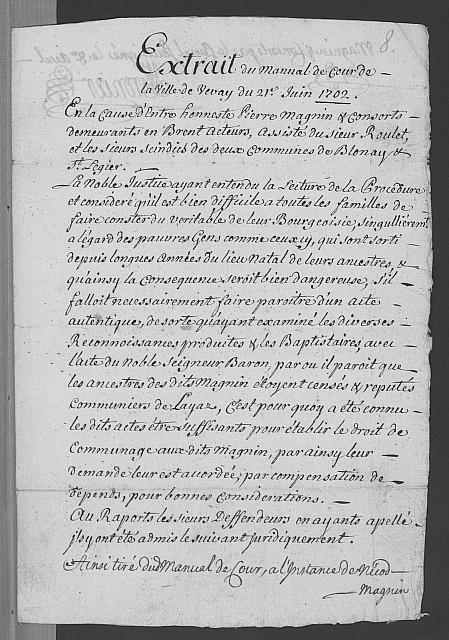 Extrait du Manual de Cour de
la Ville de Vevay du 21e. Juin 1702.
En la Cause d'Entre honneste Pierre Magnin & Consorts
demeurants en Brent Acteurs, Assisté du Sieur Roulet,
et les Sieurs Scindics des deux Communes de Blonay &
St. Legier.
La Noble Justice ayant entendu la Lecture de la Procedure
et consideré qu'il est bien difficile a toutes les familles de
faire conster du veritable de leur Bourgeoisie, singullièremt.
a légard des pauvres Gens comme ceux cy, qui sont sorti
depuis longues années du lieu Natal de leurs ancestres, &
qu'ainsy la Consequence seroit bien dangereuse, s'il
falloit necessairement faire paroitre d'un acte
autentique, de sorte qu'ayant examiné les diverses
Reconnoissances produites & les Baptistaires, avec
l'acte du Noble Seigneur Baron, par ou il paroit que
les ancestres des dits Magnin étoyent censés & reputés
Communiers de Layaz, C'est pour quoy a été connu
les dits actes étre suffisants pour établir le droit de
Communage aux dits Magnin, par ainsy leur
demande leur est accordée, par compensation de
depends, pour bonnes Considerations.
Au Raports les Sieurs Deffendeurs en ayants apellé
j'sy ont été admis le suivant juridiquement.
Ainsi tiré dud Manual de Cour, a l'Instance de Nicod
Magnin